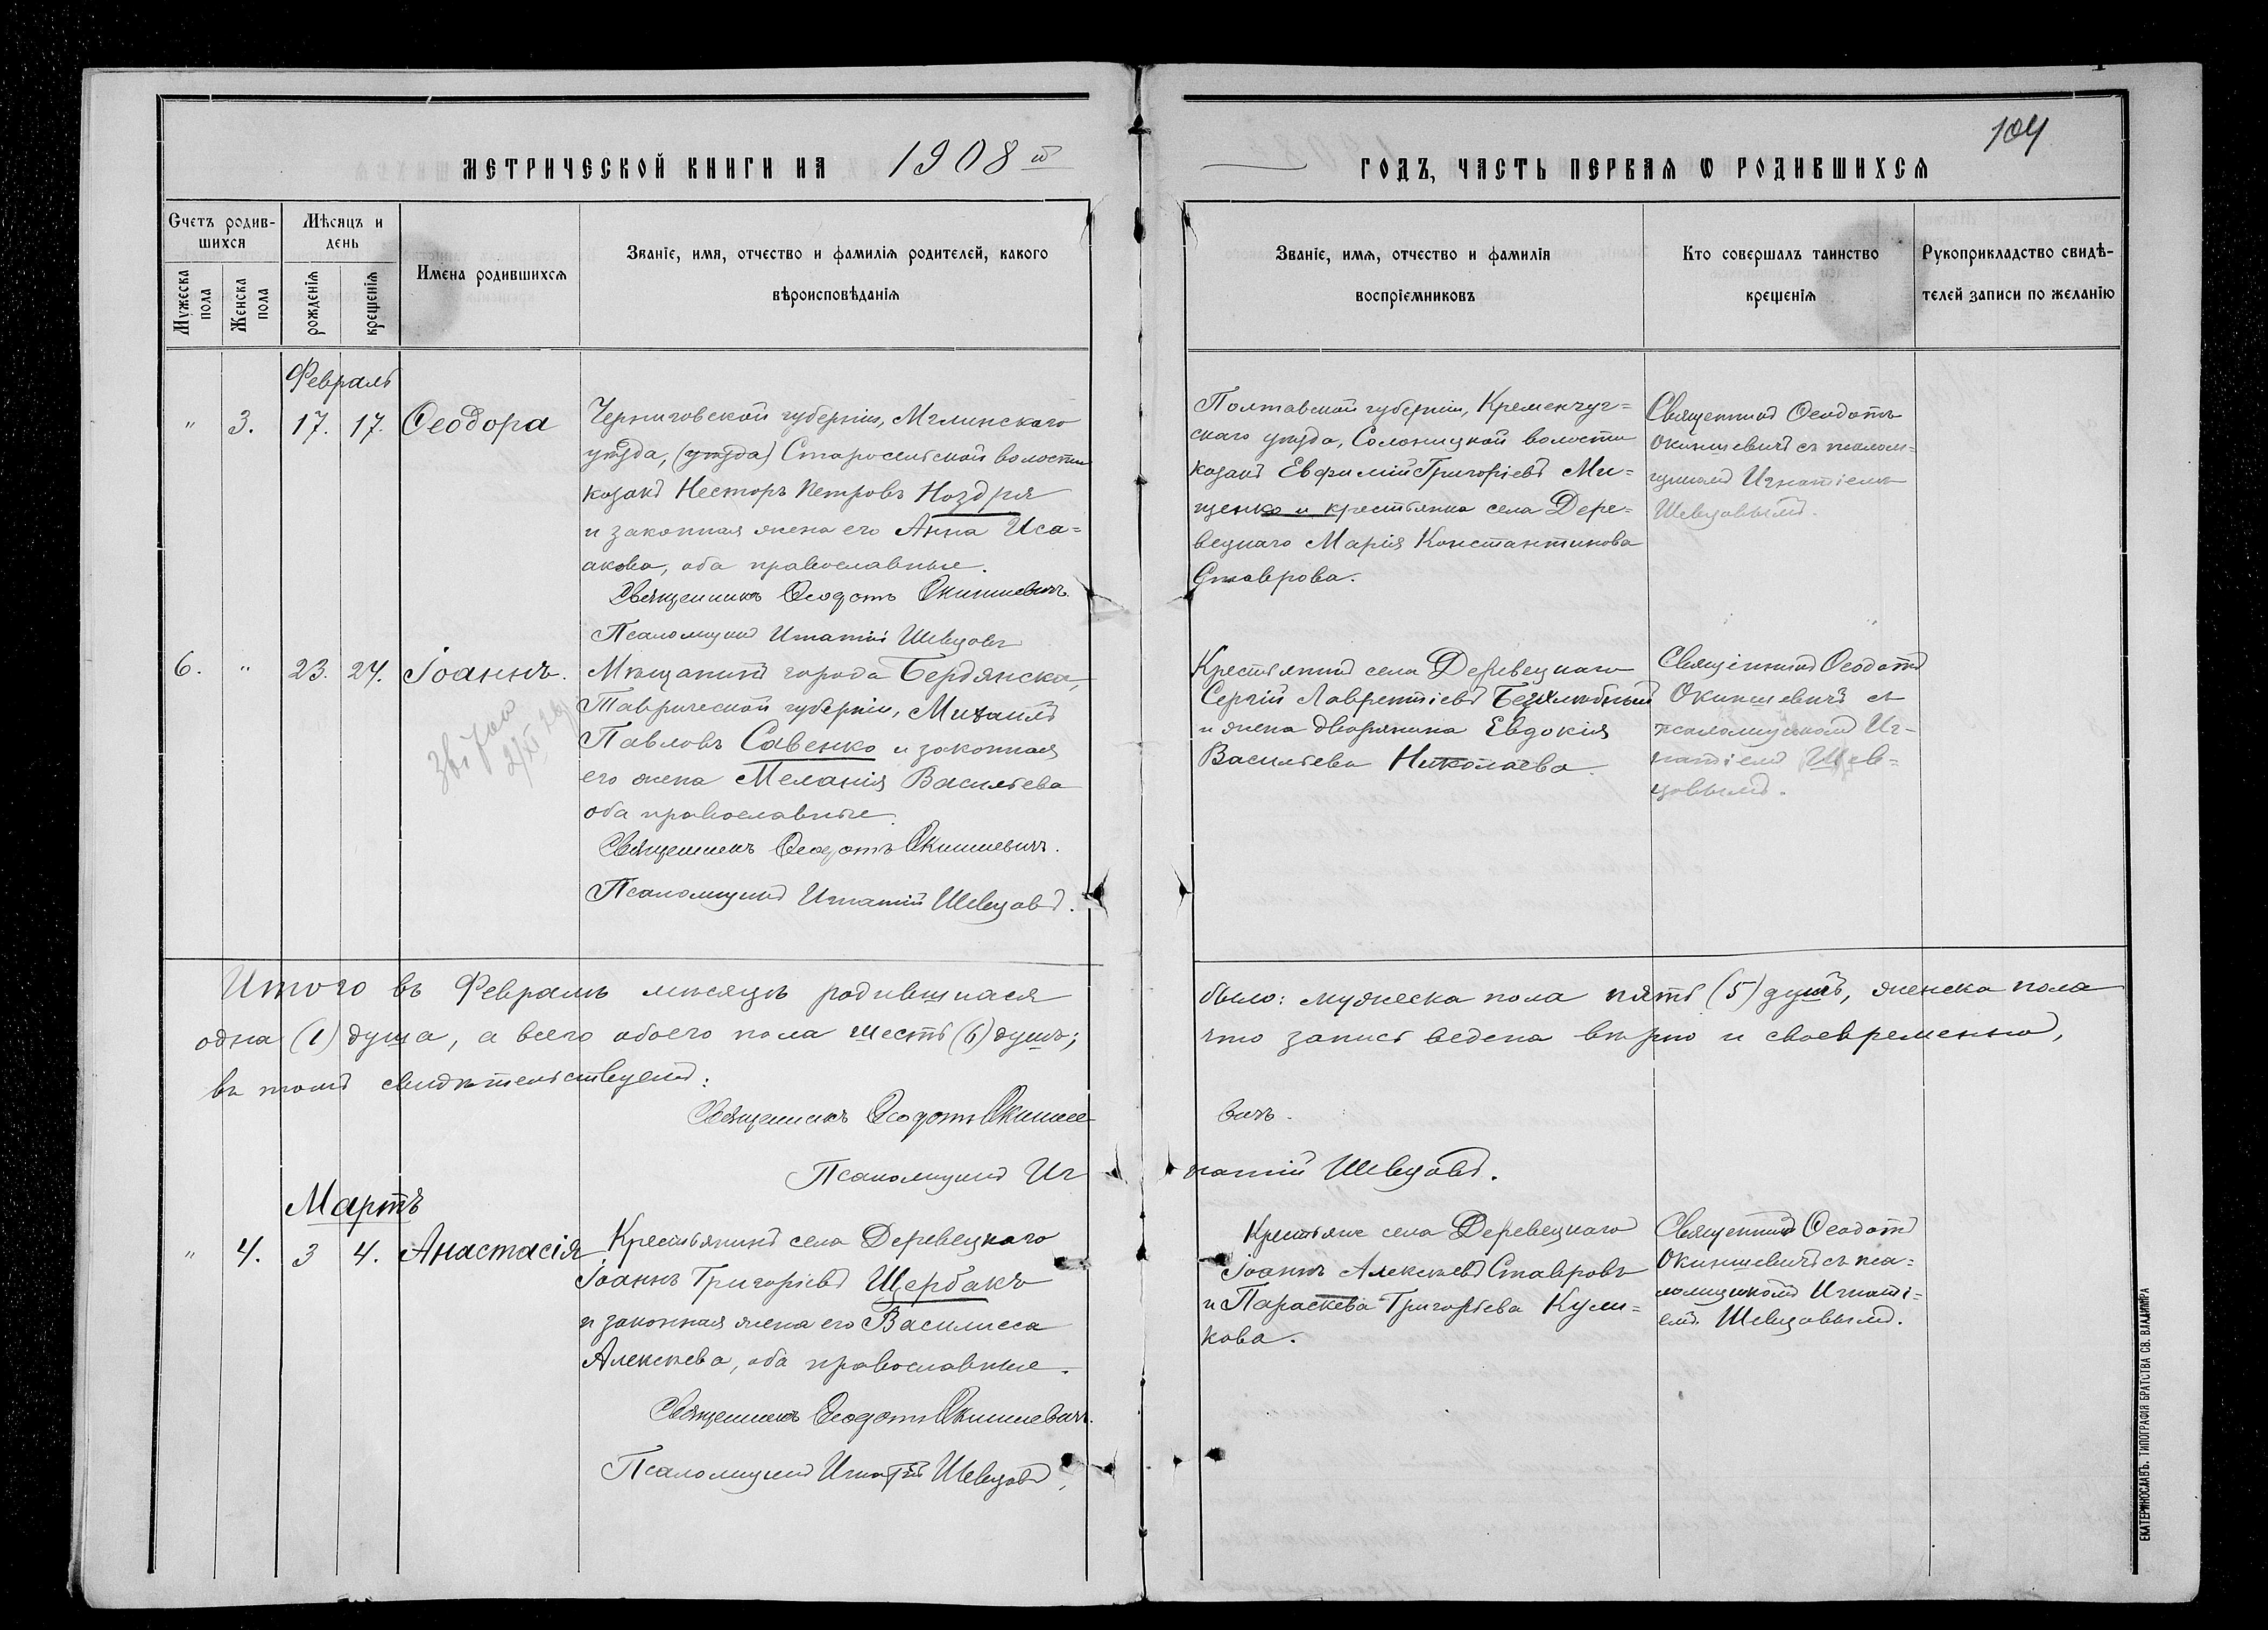 104
МЕТРИЧЕСКОЙ КНИГИ НА 1908й
ГОДЪ, ЧАСТЬ ПЕРВАЯ Ѡ РОДИВШИХСЯ
Счетъ родив-
шихся
Мужеска пола
Женска пола
Мѣсяцъ и
день
рожденія
крещенія
Имена родившихся
Званіе, имя, отчество и фамилія родителей, какого
вѣроисповѣданія
Званіе, имя, отчество и фамилія
воспріемниковъ
Кто совершалъ таинство
крещенія
Рукоприкладство свидѣ-
телей записи по желанію
Февраль
" 3. 17. 17. Ѳеодора
Черниговской губерніи, Мглинскаго
уѣзда, (уѣзда) Старосельской волости
козакъ Несторъ Петровъ Ноздря
и законная жена его Анна Иса=
акова, оба православные.
Священникъ Ѳеодотъ Окишевичъ
Псаломщикъ Игнатій Шевцовъ
Полтавской губерніи, Кременчуг=
скаго уѣзда, Солоницкой волости
козакъ Евфимій Григоріевъ Ми=
щенко и крестьянка села Дере=
вецкаго Марія Константинова
Ставрова.
Священникъ Ѳеодотъ
Окишевичъ съ псалом=
щикомъ Игнатіемъ
Шевцовымъ.
6. " 23. 24. Іоаннъ.
Мѣщанинъ города Бердянска,
Таврической губерніи, Михаилъ
Павловъ Савенко и законная
его жена Меланія Васильева
оба православные.
Священникъ Ѳеодотъ Окишевичъ.
Псаломщикъ Игнатій Шевцовъ.
Крестьянинъ села Деревецкаго
Сергій Лаврентіевъ
и жена дворянина Евдокія
Васильева Николаева.
Священникъ Ѳеодотъ
Окишевичъ съ
псаломщикомъ Иг-
натіемъ Шев=
цовымъ.
Итого въ Февралѣ мѣсяцѣ родившихся
было: мужеска пола пять (5) душъ, женска пола
одна (1) душа, а всего обоего пола шесть (6) душъ;
что запись ведена вѣрно и своевременно,
въ томъ свидѣтельствуемъ:
Священникъ Ѳеодотъ Окише
вичъ.
Псаломщикъ Иг
натій Шевцовъ.
Мартъ
" 4. 3 4. Анастасія
Крестьянинъ села Деревецкаго
Іоаннъ Григоріевъ Щербакъ
и законная жена его Василисса
Алексѣева, оба православные.
Священникъ Ѳеодотъ Окишевичъ.
Псаломщикъ Игнатій Шевцовъ.
Крестьяне села Деревецкаго
Іоаннъ Алексѣевъ Ставровъ
и Параскева Григорьева Кули=
кова.
Священникъ Ѳеодотъ
Окишевичъ съ пса=
ломщикомъ Игнаті=
емъ Шевцовымъ.
ЕКАТЕРИНОСЛАВЪ. ТИПОГРАФІЯ БРАТСТВА СВ. ВЛАДИМІРА